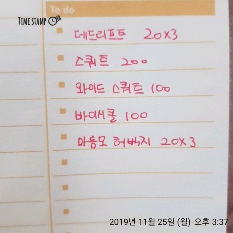 TIMESTAMP
To do
데드리프트 20x3
스쿼트 200
와이드 스쿼트 100
바이시클 100
마동모 허벅지 20x3
2019년 11월 25일 (월) 오후 3:37